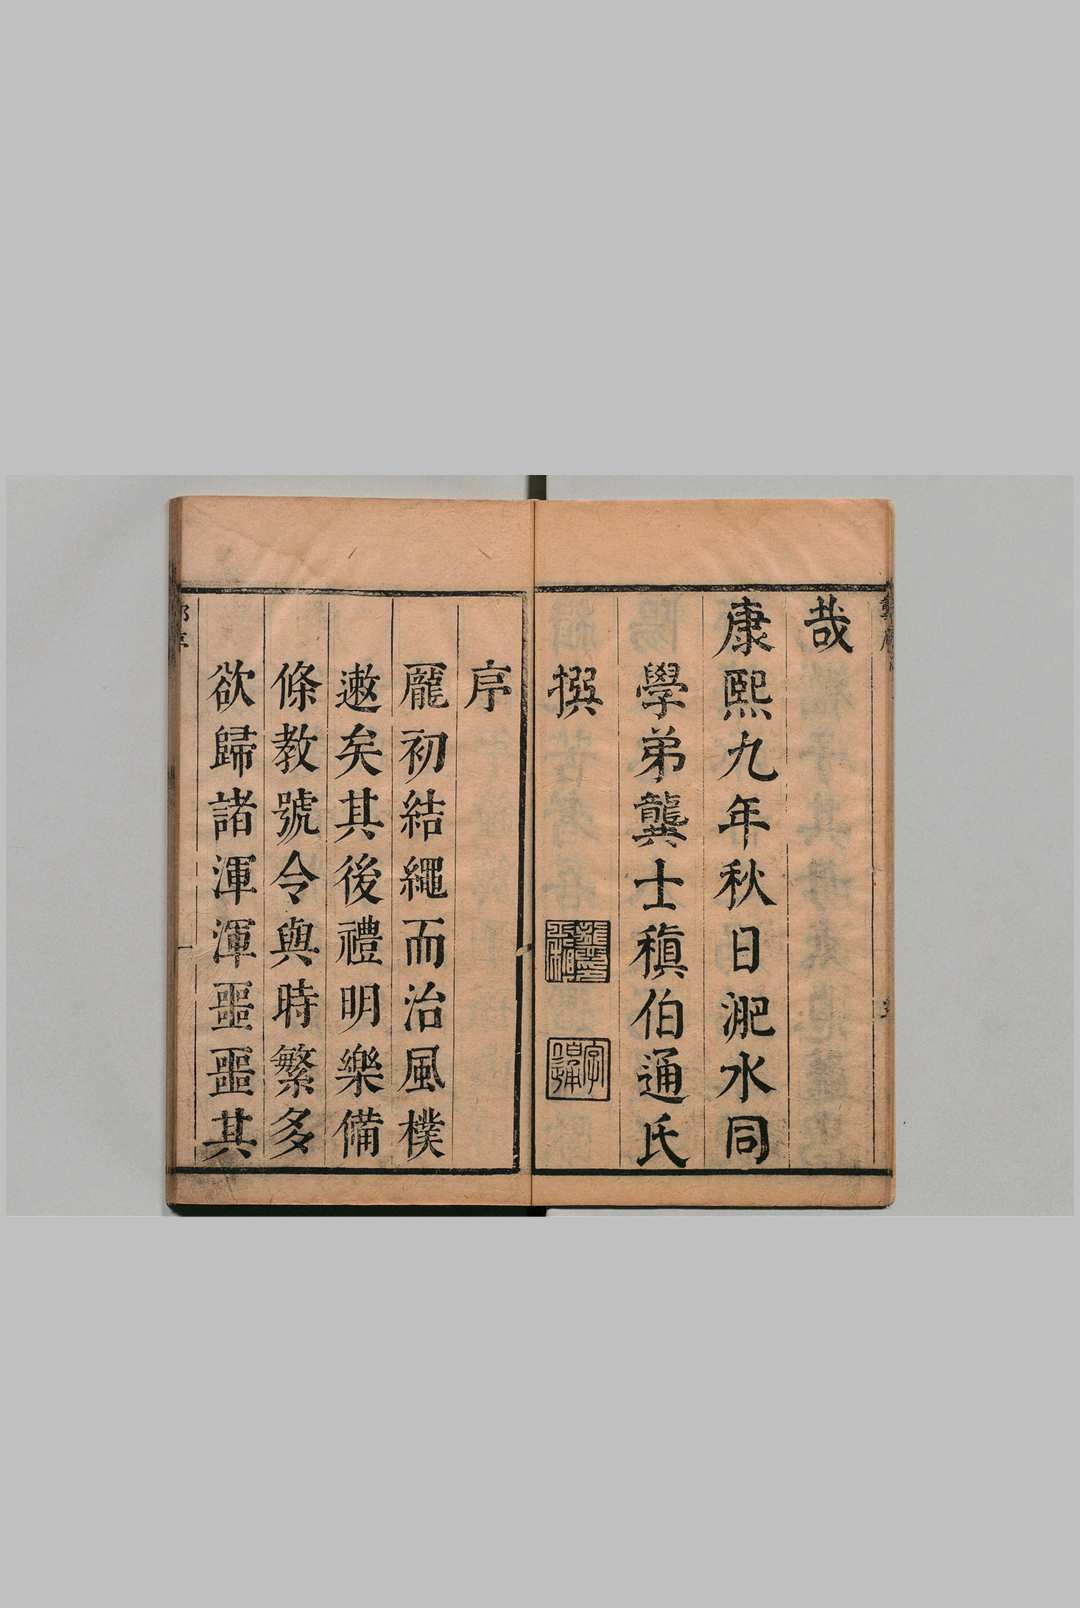 哉
康熙九年秋日淝水同
學弟龔士稹伯通氏
撰
序
龎初結繩而治風樸
遬矣其後禮明樂備
條教號令與時繁多
欲歸諸渾渾噩噩其